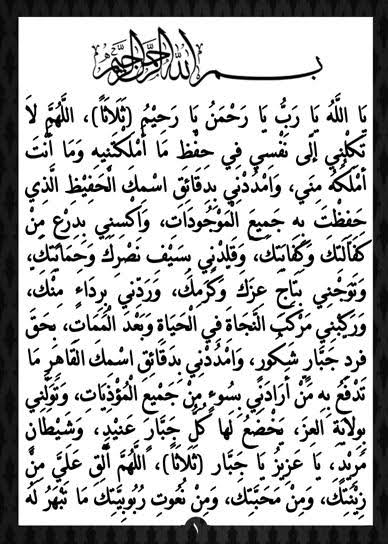 بسم الله الرحمن الرحيم
يَا اَللَّهُ يَا رَبُّ يَا رَحْمَنُ يَا رَحِيْمُ (ثَلَاثًا)، اَللَّهُمَّ لَا
تَكِلْنِي إِلَى نَفْسِي فِي حِفْظِ مَا أَمْلَكْتَنِيهِ وَمَا أَنْتَ
أَمْلَكُهُ مِنِّي، وَامْدُدْنِي بِدَقَائِقِ اِسْمِكَ الْحَفِيْظِ الَّذِي
حَفِظْتَ بِهِ جَمِيعَ الْمَوْجُودَاتِ، وَاكْسِنِي بِدِرْعٍ مِنْ
كَفَالَتِكَ وَكِفَايَتِكَ، وَقَلِّدْنِي بِسَيْفِ نَصْرِكَ وَحِمَايَتِكَ،
وَتَوِّجْنِي بِتَاجِ عِزِّكَ وَكَرَمِكَ، وَرَدِّنِي بِرِدَاءٍ مِنْكَ،
وَرَكِّبْنِي مَرْكَبَ النَّجَاةِ فِي الْحَيَاةِ وَبَعْدَ الْمَمَاتِ، بِحَقِّ
فَرْدٍ جَبَّارٍ شَكُورٍ، وَامْدُدْنِي بِدَقَائِقِ اِسْمِكَ الْقَاهِرِ مَا
تَدْفَعُ بِهِ مَنْ أَرَادَنِي بِسُوءٍ مِنْ جَمِيعِ الْمُؤْذِيَاتِ، وَتَوَلَّنِي
بِوِلَايَةِ الْعِزِّ، يَخْضَعُ لَهَا كُلُّ جَبَّارٍ عَنِيْدٍ، وَشَيْطَانٍ
مَرِيْدٍ، يَا عَزِيْزُ يَا جَبَّارُ (ثَلَاثًا)، اَللَّهُمَّ أَلْقِ عَلَيَّ مِنْ
زِيْنَتِكَ، وَمِنْ مَحَبَّتِكَ، وَمِنْ نُعُوتِ رُبُوبِيَّتِكَ مَا تَبْهَرُ لَهُ
١